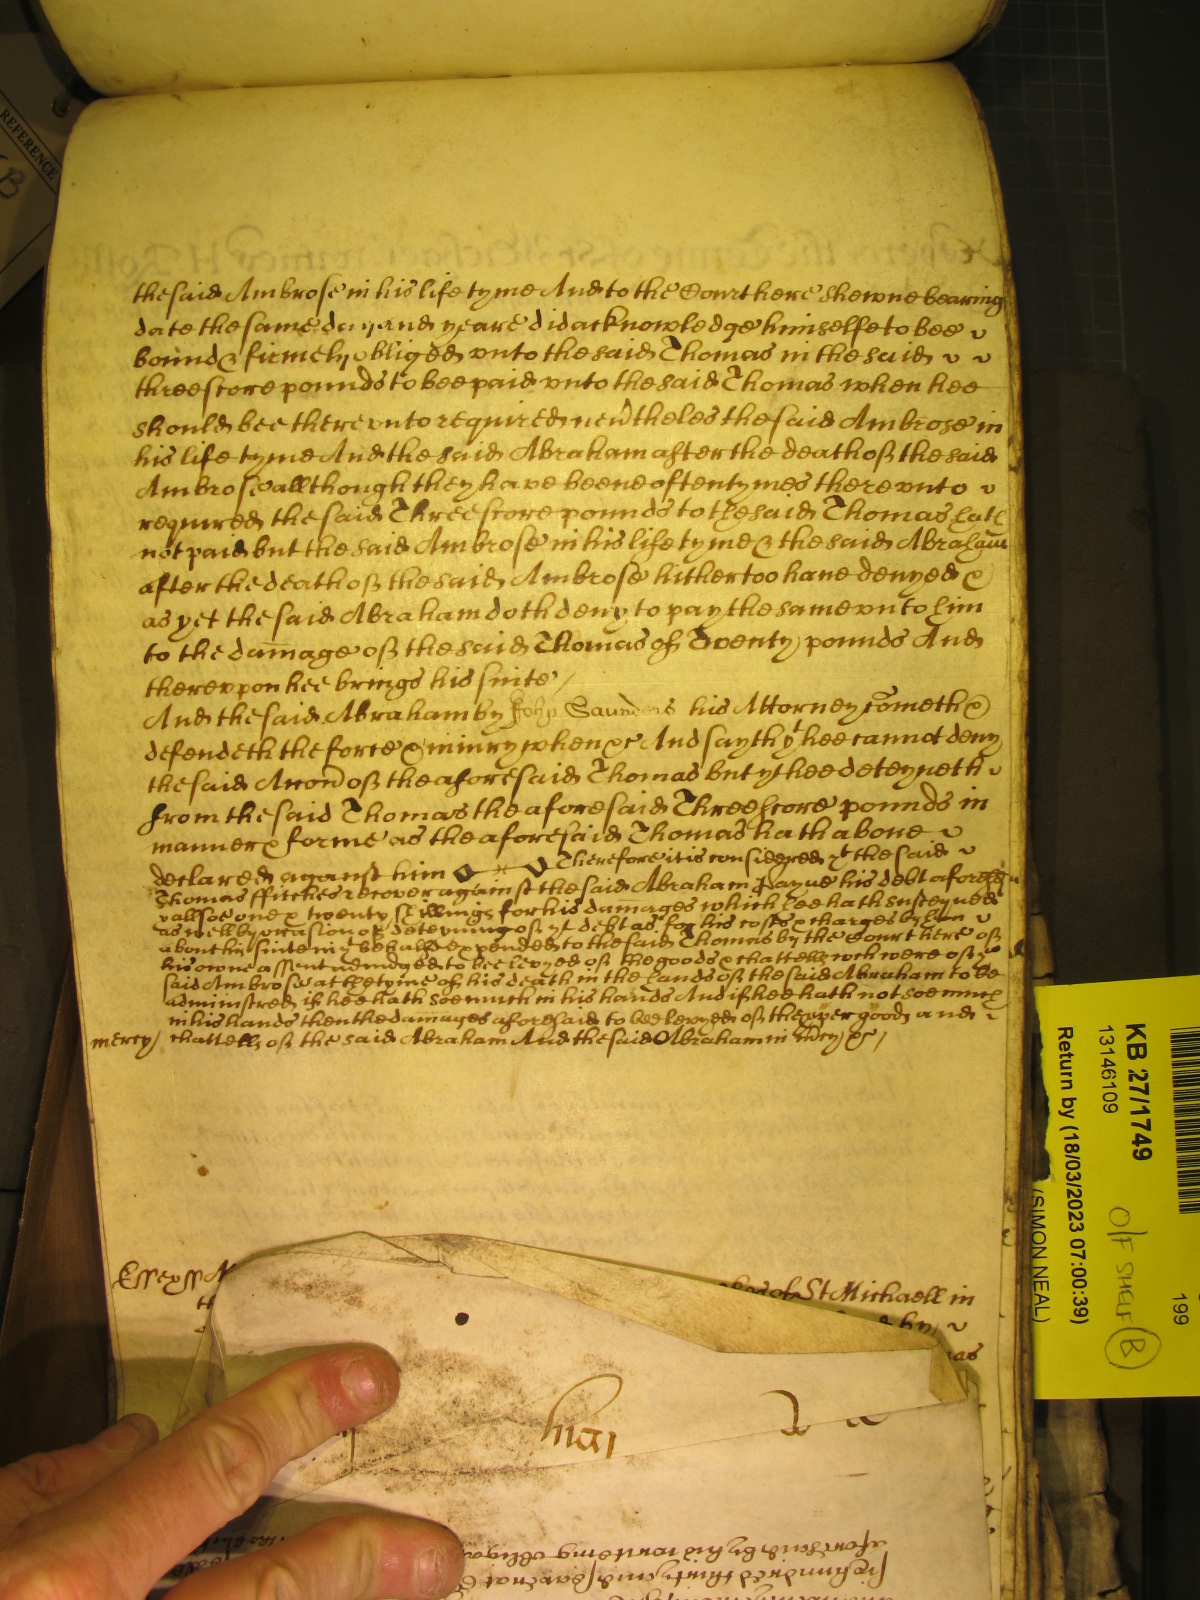 the said Ambrose in his life tyme And to the Court here shewne bearing
date the same day and yeare did acknowledge himselfe to bee
bound & firmely obliged unto the said Thomas in the said
threescore pounds to bee paid vnto the said Thomas when hee
should bee there vnto required nevertheles the said Ambrose in
his life tyme And the said Abraham after the death of the said
Ambrose allthough they have beene oftentymes there vnto
required the said Threescore pounds to the said Thomas hath
not paid but the said Ambrose in his life tyme & the said Abraham
after the death of the said Ambrose hithertoo have denyed &
as yet the said Abraham doth deny to pay the same vnto him
to the damage of the said Thomas of Twenty pounds And
therevpon hee brings his suite
And the said Abraham by John Saunders his Attorney cometh &
defendeth the force & iniury when &c And sayth yt hee cannot deny
the said Accon of the aforesaid Thomas but yt hee deteyneth
from the said Thomas the aforesaid Threescore pounds in
manner & forme as the aforesaid Thomas hath above
declared against him Therefore it is considered yt the said
Thomas ffitches recover against the said Abraham Payne his debt aforesd
& allsoe one & twenty shillings for his damages which hee hath susteyned
as well by occasion of deteyning of yt debt as for his costs & charges by him
about his suite in yt behalfe expended to the said Thomas by the Court here of
his owne assent adiudged to bee levyed of the goods & chattells wch were of ye
said Ambrose at the tyme of his death in the hands of the said Abraham to be
administred if hee hath soe much in his hands And if hee hath not soe much
in his hands then the damages aforesaid to bee levyed of the proper goods and
mercy chattells of the said Abraham And the said Abraham in Mercy &c
Essex ss
of St Michaell in
by
hiai
aforesaid by his writeing obliga
six hundred thirty and
REFERENCE
KB 27/1749
13146109
Return by (18/03/2023 07:00:39)
(SIMON NEAL)
O/F SHELF B
199